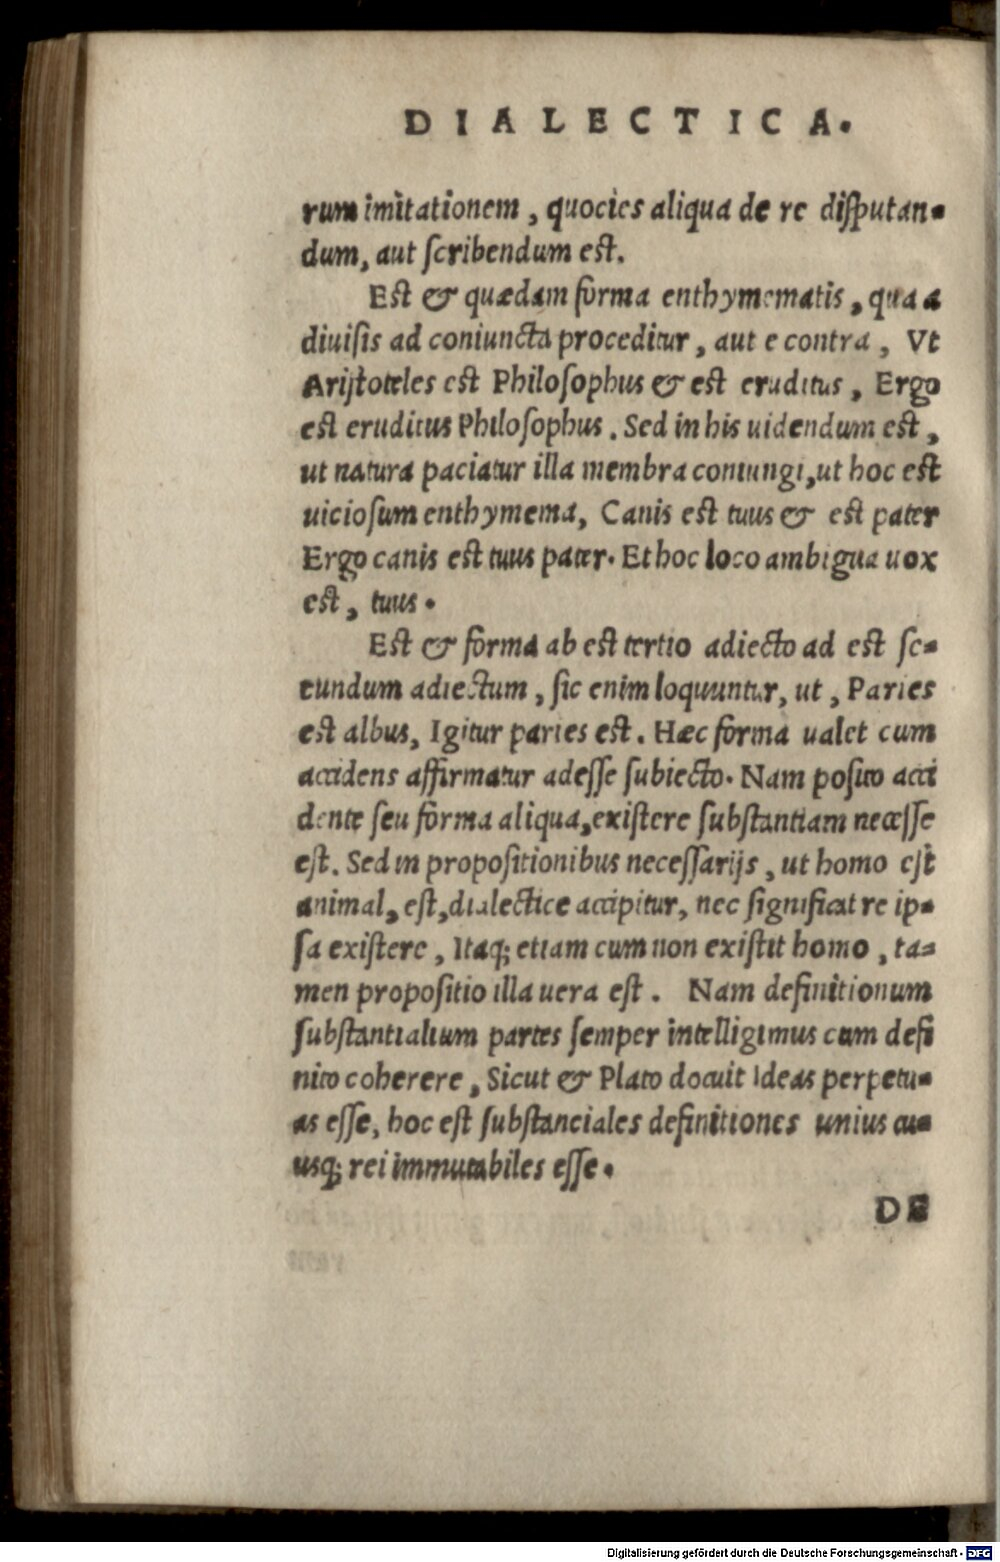 DIALECTICA.
rum imitationem, quocies aliqua de re diſputan-
dum, aut ſcribendum eſt.
Eſt & quædam forma enthymematis, qua a
diuiſis ad coniuncta proceditur, aut e contra, Vt
Ariſtoteles eſt Philoſophus & eſt eruditus, Ergo
eſt eruditus Philoſophus. Sed in his uidendum eſt,
ut natura paciatur illa membra coniungi, ut hoc eſt
uicioſum enthymema, Canis eſt tuus & eſt pater
Ergo canis eſt tuus pater. Et hoc loco ambigua uox
eſt, tuus.
Eſt & forma ab eſt tertio adiecto ad eſt ſe-
cundum adiectum, ſic enim loquuntur, ut, Paries
eſt albus, Igitur paries eſt. Hæc forma ualet cum
accidens affirmatur adeſſe ſubiecto. Nam poſito acci
dente ſeu forma aliqua, exiſtere ſubſtantiam neceſſe
eſt. Sed in propoſitionibus neceſſarijs, ut homo eſt
animal, eſt, dialectice accipitur, nec ſignificat re ip-
ſa exiſtere, Itaq; etiam cum non exiſtit homo, ta-
men propoſitio illa uera eſt. Nam definitionum
ſubſtantialium partes ſemper intelligimus cum defi
nito coherere, Sicut & Plato docuit Ideas perpetu-
as eſſe, hoc eſt ſubſtanciales definitiones unius cu-
usq; rei immutabiles eſſe.
DE
Digitalisierung gefördert durch die Deutsche Forschungsgemeinschaft - DFG